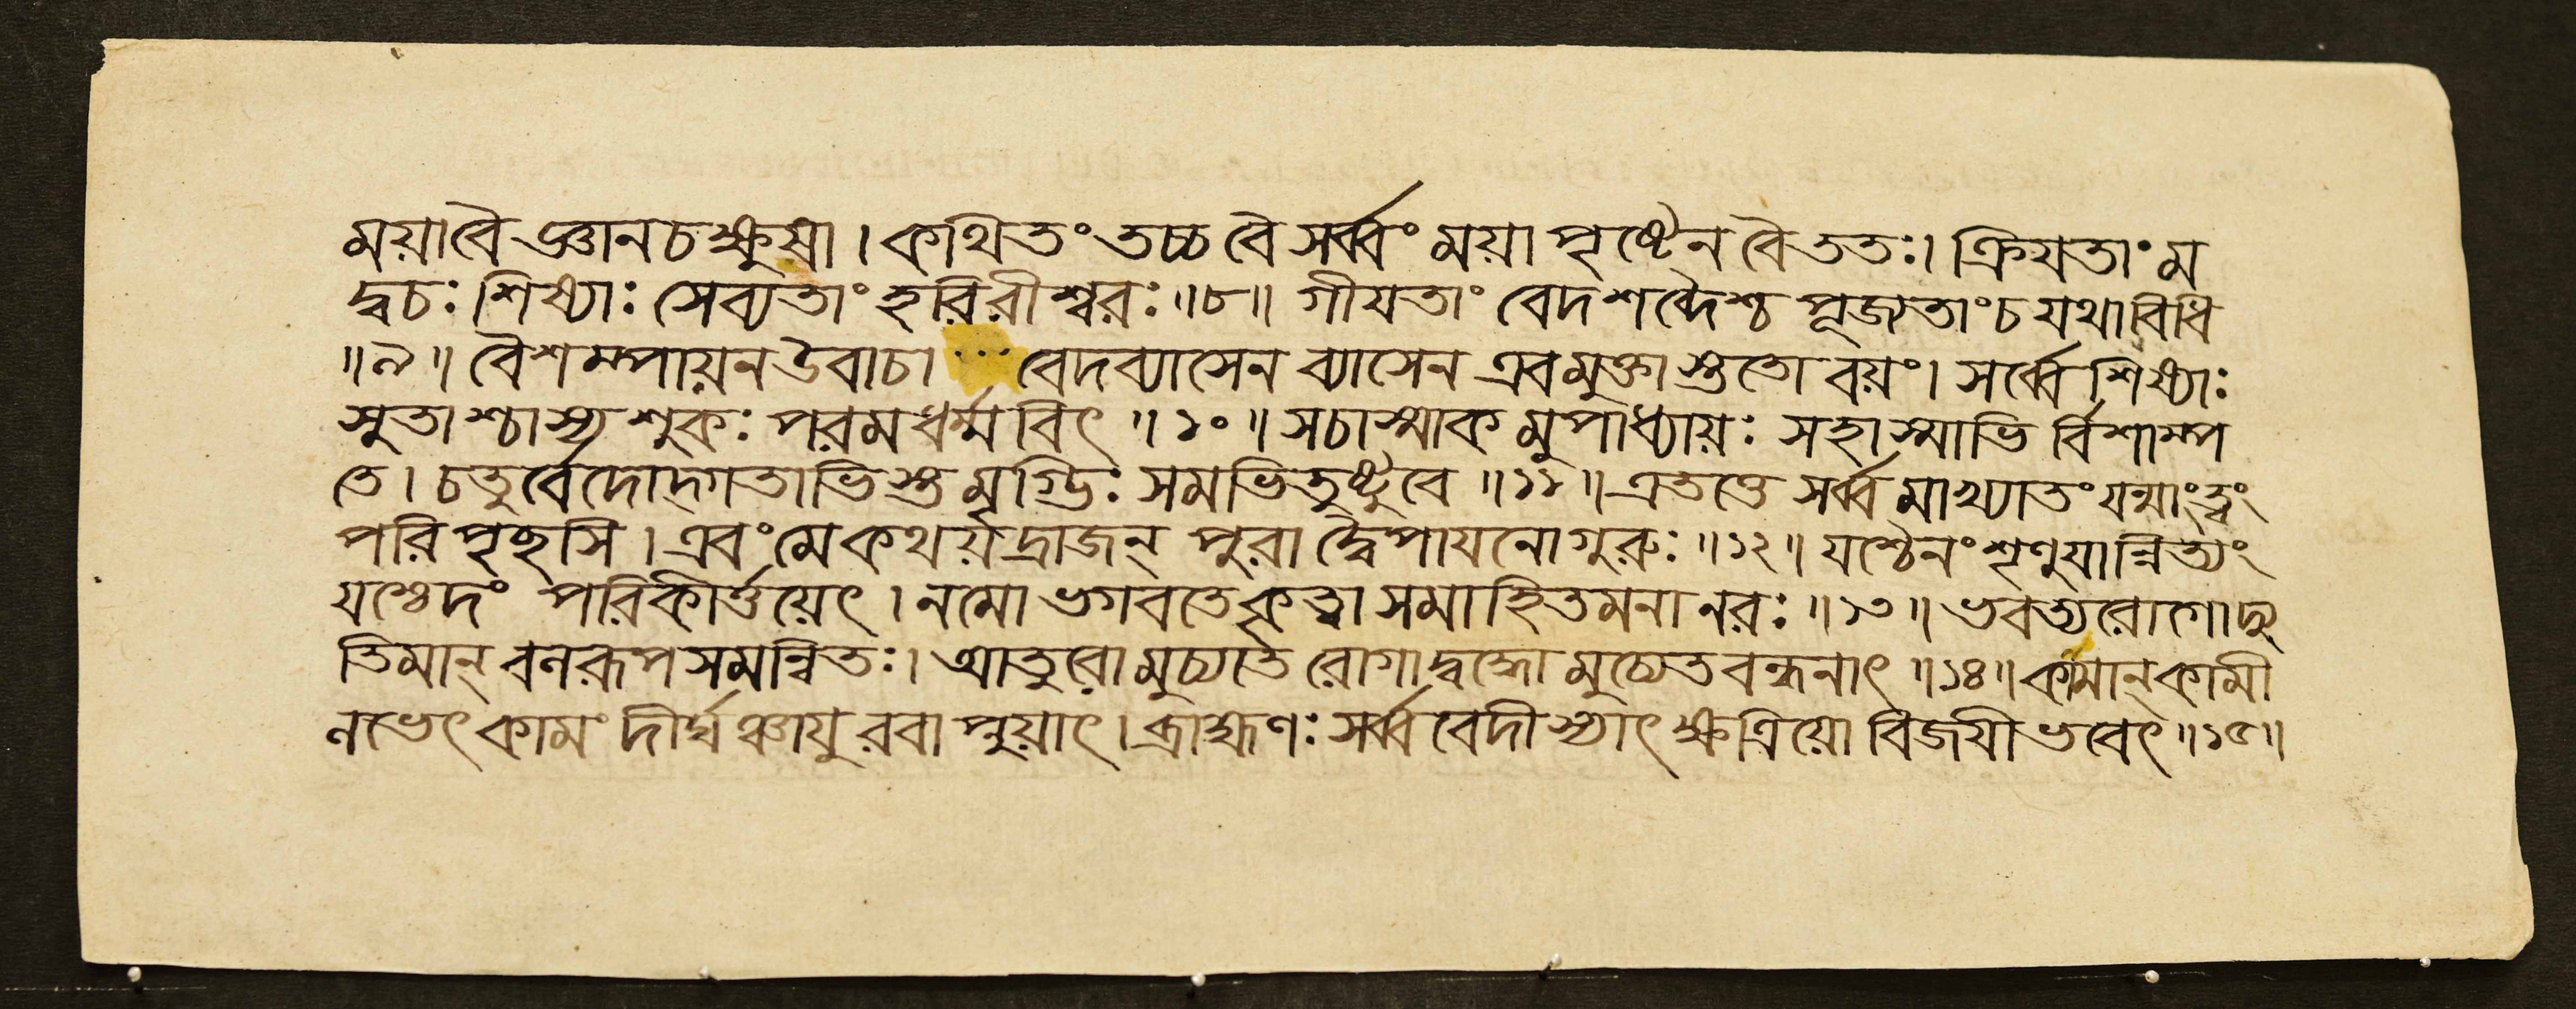 ময়াবৈ জ্ঞানচক্ষুষা । কথিতং তচ্চ বৈ সর্ব্বং ময়া পৃষ্টেন বৈ ততঃ। ক্রিযতাং ম
দ্বচঃ শিষ্যাঃ সেব্যতাং হরিরীশ্বরঃ ॥৮॥ গীযতাং বেদশব্দৈশ্চ পূজ্যতাংচ যথাবিধি
॥৯॥ বৈশম্পায়ন উবাচ। বেদব্যাসেন ব্যাসেন এবমুক্তাস্তুতো বয়ং। সর্ব্বে শিষ্যাঃ
সুতাশ্চাস্য শুকঃ পরমধর্ম্মবিৎ ॥১০॥ সচাস্মাকমুপাধ্যায়ঃ সহাস্মাভি র্বিশাম্প
তে। চতুর্বেদোদ্গতাভিস্তু মৃগ্ভিঃ সমভিতুষ্টুবে ॥১১॥ এতত্তে সর্ব্বমাখ্যাতং যন্মাংত্বং
পরিপৃছসি । এবং মে কথয়দ্রাজন্ পুরা দ্বৈপাযনো গুরুঃ ॥১২॥ যশ্চৈনং শৃণুযান্নিত্যং
যশ্চেদং পরিকীর্ত্তয়েৎ । নমো ভগবতে কৃত্বা সমাহিতমনা নরঃ ॥১৩॥ ভবত্যরোগোদ্যু
তিমান্ বলরূপসমন্বিতঃ। আতুরো মুচ্যতে রোগাদ্বদ্ধো মুচ্যেত বন্ধনাৎ ॥১৪॥ কামান্ কামী
লভেৎ কামং দীর্ঘঞ্চায়ুরবাপ্নুয়াৎ । ব্রাহ্মণঃ সর্ব্ববেদী স্যাৎ ক্ষত্রিয়ো বিজযী ভবেৎ ॥১৫॥